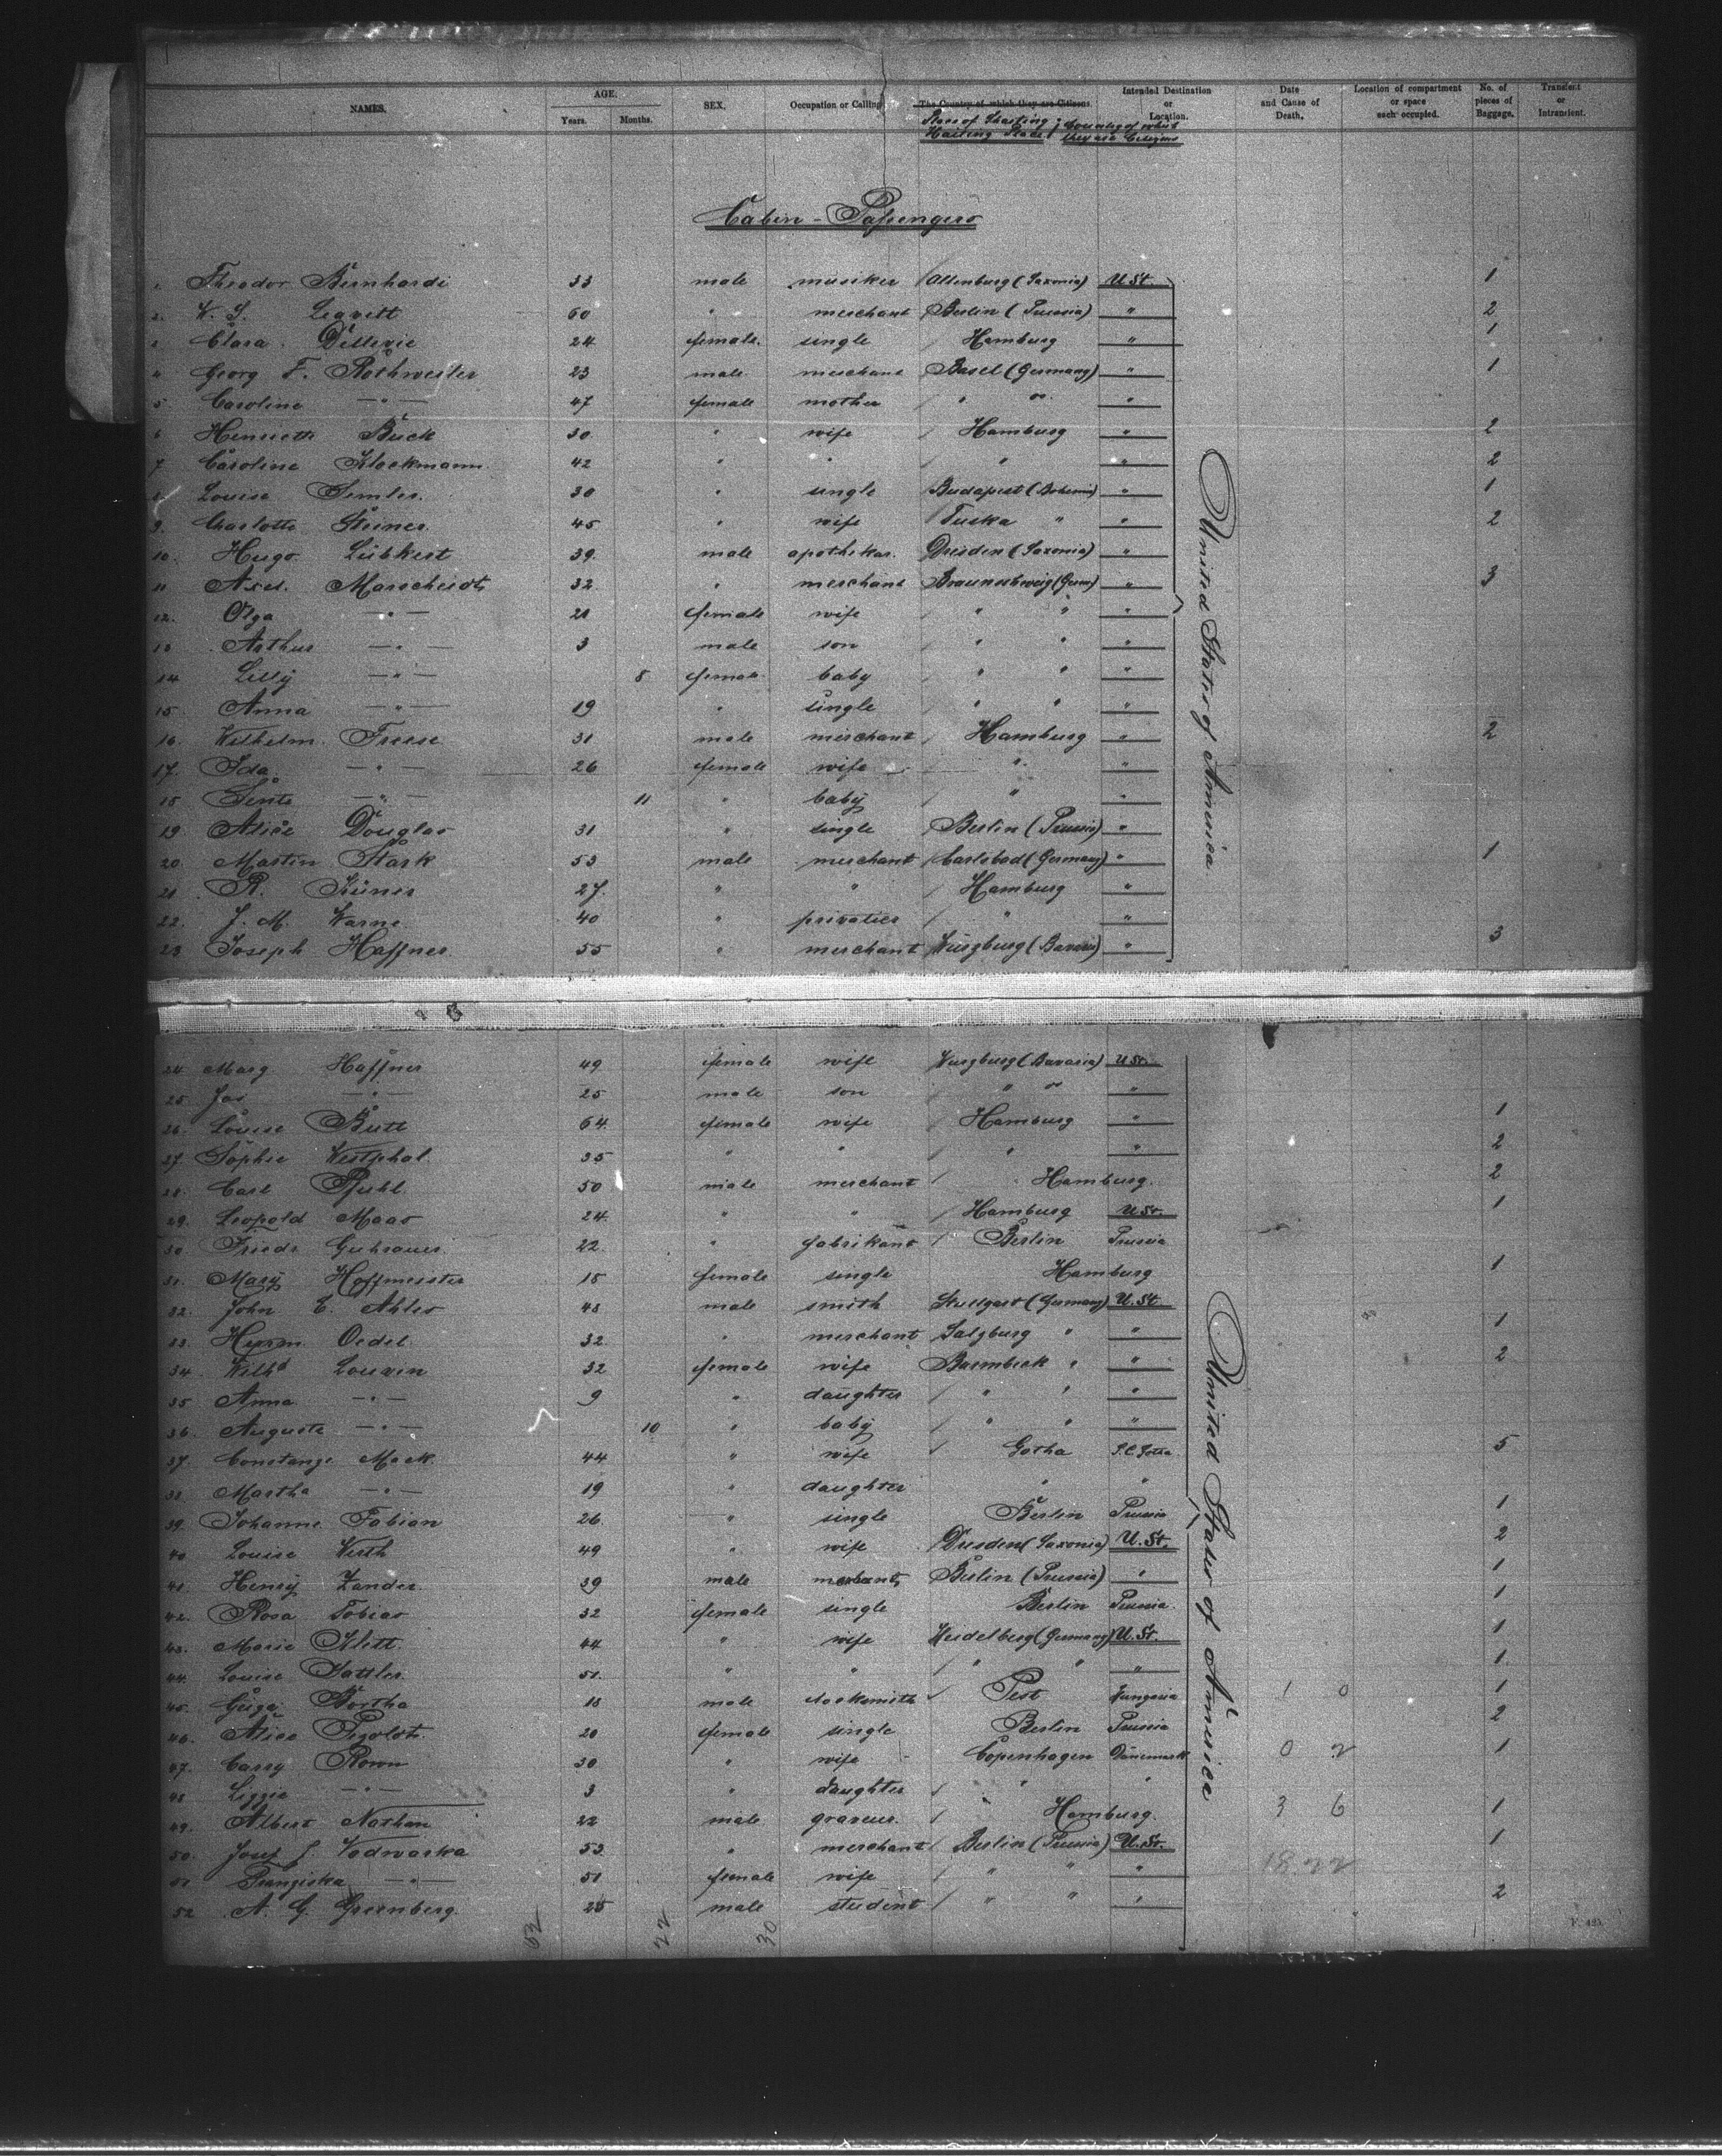 NAMES. AGE. Years. Months. SEX. Occupation or Calling The Country of which they are Citizens. Intended Destination or Location. Date and Cause of Death. Location of compartment or space each occupied. No. of pieces of Baggage. Transient or Intransient.
Place of Starting; Hailing Place; Country of which they are Citizens
Cabin-Passengers
1. Theodor Bernhardi 33 male musiker Altenburg (Saxonia) U St. 1
2. W. S. Leavitt 60 " merchant Berlin (Prussia) " 2
3 Clara 24 female. single Hamburg " 1
4 Georg F. Rothweiler 23 male merchant Basel (Germany) " 1
5 Caroline -"- 47 female mother " " "
6 Henriette Buck 30 " wife Hamburg " 2
7 Caroline Klockmann 42 " " " " 2
8 Louise Semler. 30 " single Budapest (Bohemia) " 1
9. Charlotte Steiner. 45 " wife Tuska " " 2
10. Hugo Lübkert 39. male apotheker. Dresden (Saxonia) "
11 Axel. Marscheidt 32 " merchant Braunschweig (Germ) " 3
12. Olga -"- 21 female wife " " "
13 Arthur -"- 3 male son " " "
14 Lilly -"- 8 female baby " " "
15. Anna -"- 19 " single " " "
16. Wilhelm Freese 31 male merchant Hamburg " 2
17. Ida -"- 26 female wife " "
18 -"- 11 " baby " "
19. Alice Douglas 31 " single Berlin (Prussia) "
20. Martin Stark 53 male merchant Carlsbad (Germany) " 1
21 R. 27. " " Hamburg "
22. J. M. Warne 40 " privatier " "
23 Joseph Haffner. 55 " merchant Würzburg (Bavaria) " 3
United States of America
24 Marg Haffner 49 female wife Wurzburg (Bavaria) U St.
25 Jos -"- 25 male son " " "
26. Louise Butt 64. female wife Hamburg " 1
27. Sophie Westphal. 35 " " " " 2
28. Carl Pfuhl. 50 male merchant Hamburg. 2
29. Leopold Maas 24. " " Hamburg U St. 1
30 Friedr Guhrauer. 22. " fabrikant Berlin Prussia
31. Mary Hoffmeister 18 female single Hamburg 1
32. John E. Ahlers 48 male smith Stuttgart (Germany) U. St.
33. Herm Oedel. 32 " merchant Salzburg " " 1
34. Louven 32 female wife Barmbeck " " 2
35 Anna -"- 9 " daughter " " "
36. Auguste -"- 10 " baby " " "
37. Constanze Mack. 44 " wife Gotha S. C. Gotha 5
38. Martha -"- 19 " daughter " "
39. Johanne Fabian 26. " single Berlin Prussia 1
40 Louise Werth 49 " wife Dresden (Saxonia) U. St. 2
41. Henry Zander. 39 male merchant Berlin (Prussia) " 1
42. Rosa Tobias 32 female single Berlin Prussia. 1
43. Marie Klett. 44 " wife Heidelberg (Germany) U. St. 1
44. Louise Sattler. 51. " " " " " 1
45. Bertha 18 male Pest Hungaria 1 0 1
46. Alice Pezoldt. 20 female single Berlin Prussia 2
47. Carry Rown 30 " wife Copenhagen Dänemark 0 2 1
48 Lizzie -"- 3 " daughter " "
49. Albert Nathan 22 male graveur. Hamburg. 3 6 1
50. Josef J. Vodwarka 53 " merchant Berlin (Prussia) U. St. 1
51 Franziska -"- 51 female wife " " " 1822
52 A. G. Greenberg. 25 male student " " " 2
United States of America
22 30
F. 425.